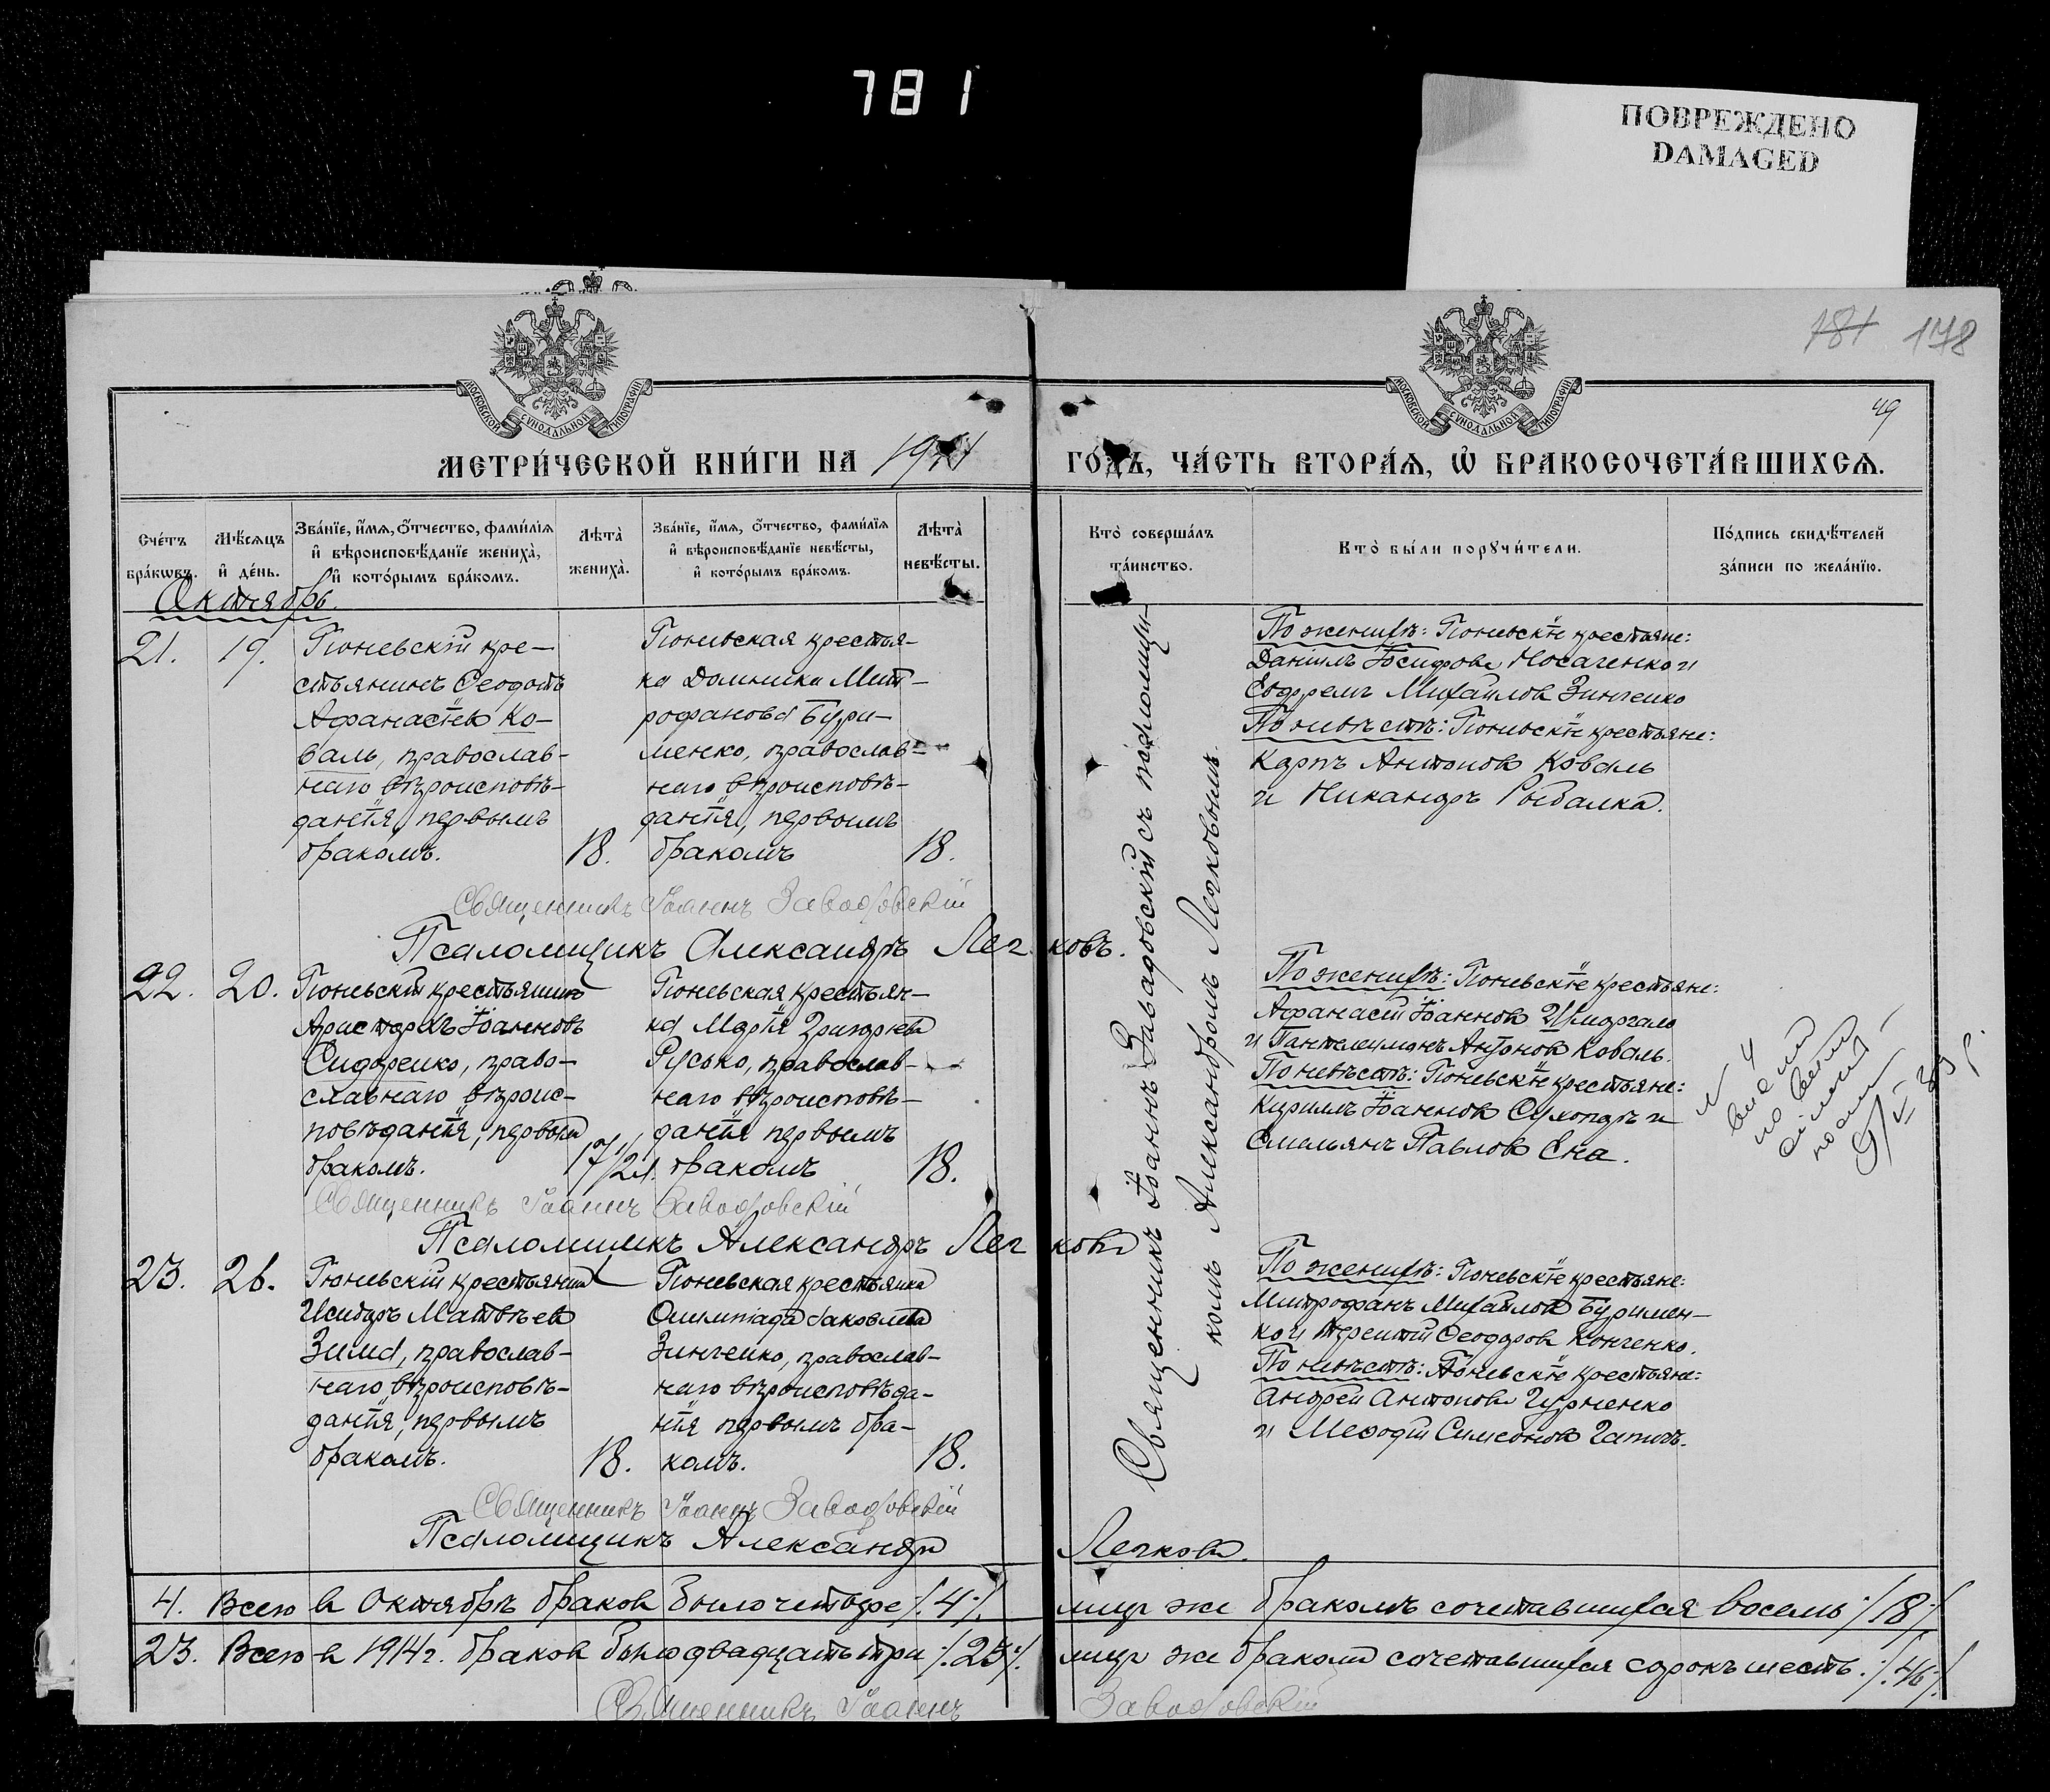 781
ПОВРЕЖДЕНО
DAMAGED
181 178
49
МОСКОВСКОЙ СУНОДАЛЬНОЙ ТИПОГРАФІИ
МОСКОВСКОЙ СУНОДАЛЬНОЙ ТИПОГРАФІИ
МЕТРИ́ЧЕСКОЙ КНИ́ГИ НА 1914
ГО́ДЪ, ЧА́СТЬ ВТОРА́Ѧ, Ѽ БРАКОСОЧЕТА́ВШИХСѦ.
Сче́тъ бра́кѡвъ.
Мѣ́сѧцъ и҆ де́нь.
Зва́нїе, и҆́мѧ, ѻ҆́тчество, фами́лїѧ и҆ вѣроисповѣ́данїе жениха̀, и҆ кото́рымъ бра́комъ.
Лѣта̀ жениха̀.
Зва́нїе, и҆́мѧ, ѻ҆́тчество, фами́лїѧ и҆ вѣроисповѣ́данїе невѣ́сты, и҆ кото́рымъ бра́комъ.
Лѣта̀ невѣ́сты.
Кто̀ соверша́лъ та́инство.
Кто̀ бы́ли порꙋчи́тели.
По́дпись свидѣ́телей за́писи по жела́нїю.
Октябрь.
21. 19.
Гюневскій кре-
стьянинъ Ѳеодотъ
Афанасіевъ Ко-
валь, православ-
наго вѣроисповѣ-
данія, первымъ
бракомъ.
18.
Гюневская крестья-
ка Домника Мит-
рофанова Бури-
менко, православ-
наго вѣроисповѣ-
данія, первымъ
бракомъ
18.
Священникъ Іоаннъ Завадовскій съ псаломщи-
комъ Александромъ Легковымъ.
По женихѣ: Гюневскіе крестьяне:
Даніилъ Іосифовъ Носаченко и
Ефремъ Михаиловъ Зинченко
По невѣстѣ: Гюневскіе крестьяне:
Карпъ Антоновъ Коваль
и Никандръ Рыбалка.
Священникъ Іоаннъ Завадовскій
Псаломщикъ Александръ Легковъ.
22. 20.
Гюневскій крестьянинъ
Аристархъ Іоанновъ
Сидоренко, право-
славнаго вѣроис-
повѣданія, первымъ
бракомъ.
17/21.
Гюневская крестьян-
ка Марія Григорьева
Русько, православ-
наго вѣроисповѣ-
данія первымъ
бракомъ
18.
По женихѣ: Гюневскіе крестьяне:
Афанасій Іоанновъ Шморгало
и Пантелеимонъ Антоновъ Коваль.
По невѣстѣ: Гюневскіе крестьяне:
Кириллъ Іоанновъ Сухопаръ и
Емельянъ Павловъ Ена.
Священникъ Іоаннъ Завадовскій
Псаломщикъ Александръ Легковъ
23. 26.
Гюневскій крестьянинъ
Исидоръ Матвѣевъ
Зима, православ-
наго вѣроисповѣ-
данія, первымъ
бракомъ.
18.
Гюневская крестьянка
Олимпіада Іаковлева
Зинченко, православ-
наго вѣроисповѣда-
нія первымъ бра-
комъ.
18.
По женихѣ: Гюневскіе крестьяне:
Митрофанъ Михаиловъ Буримен-
ко и Терентій Ѳеодоровъ Конченко.
По невѣстѣ: Гюневскіе крестьяне:
Андрей Антоновъ
и Меѳодій Симеоновъ
Священникъ Іоаннъ Завадовскій
Псаломщикъ Александръ Легковъ.
4. Всего въ Октябрѣ браковъ было четыре /.4./. лицъ же бракомъ сочетавшихся восемь ./8./
23. Всего въ 1914 г. браковъ было двадцать три ./.23./. лицъ же бракомъ сочетавшихся сорокъ шесть. ./.46./.
Священникъ Іоаннъ Завадовскій